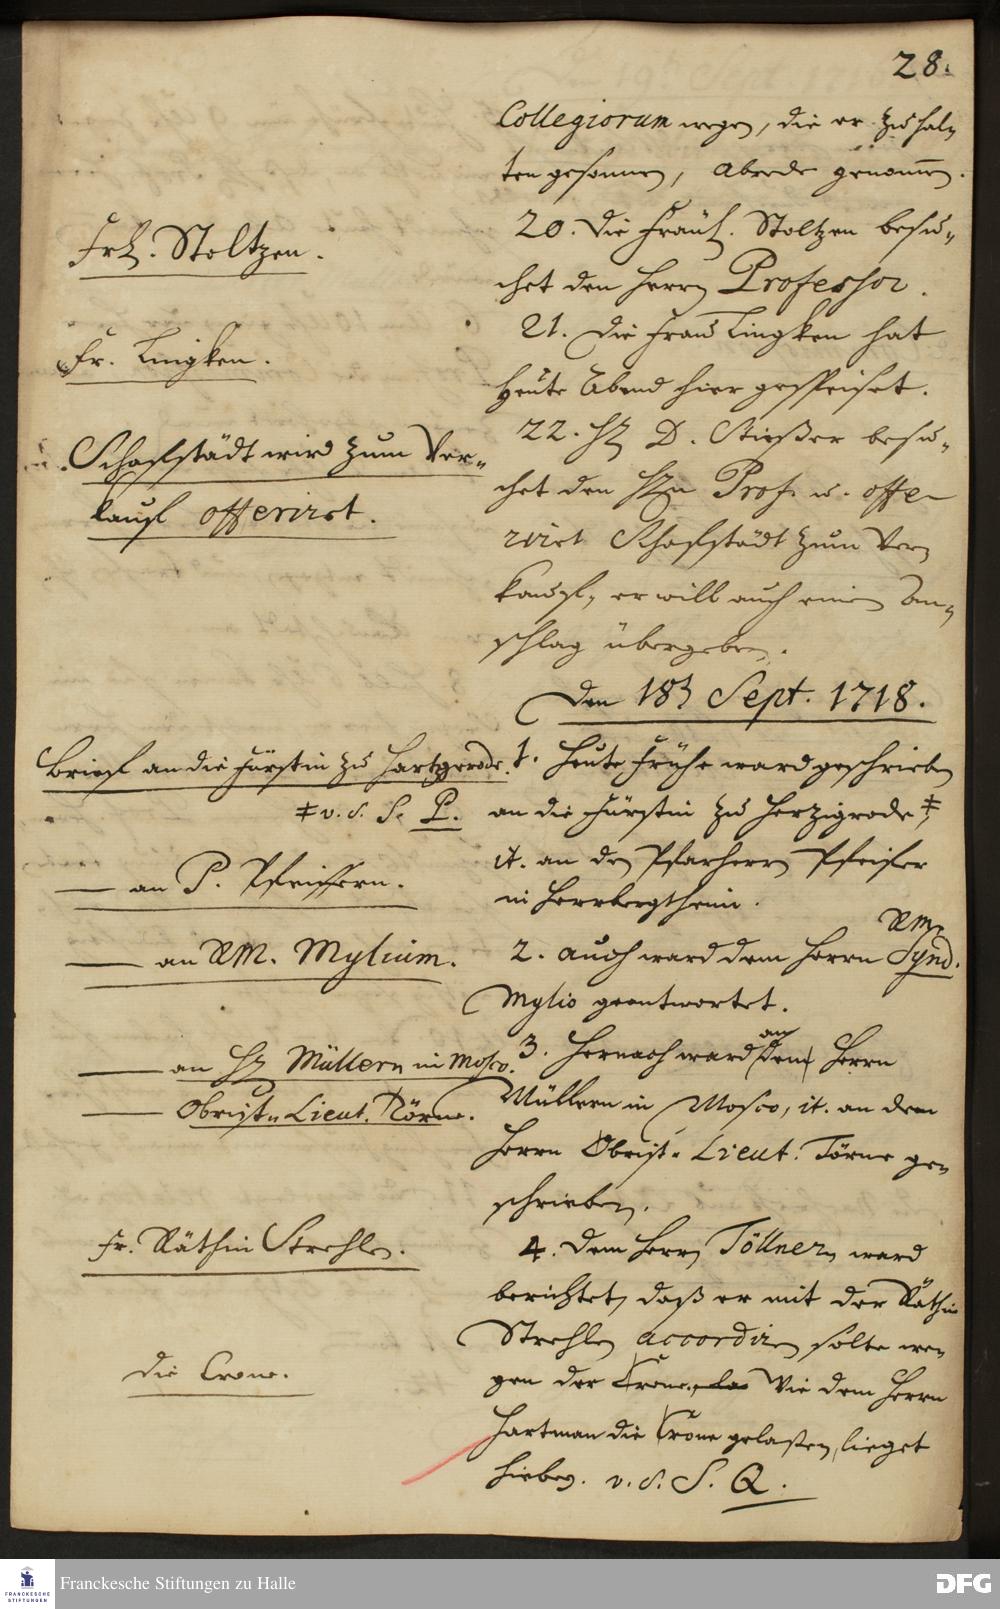 28.
Collegiorum wegen, die er zu hal-
ten gesonnen, Abrede genommen.
Frl. Stoltzen.
20. Die Fräul. Stoltzen besu-
chet den Herrn Professor.
Fr. Lingken.
21. Die Frau Lingken hat
heute Abend hier gespeiset.
Schafstädt wird zum Ver-
kauf offerirt.
22. H D. Stießer besu-
chet den Hn Prof. u. offe-
rirt Schafstädt zum Ver-
kauf, er will auch einen An-
schlag übergeben.
Den 18 Sept. 1718.
Brief an die Fürstin zu Hartzgerode.
‡ v. d. S. P.
1. Heute Frühe ward geschrieben
an die Fürstin zu Hertzigrode, ‡
it. an den Pfarherrn Pfeiffer
in Herrbergtheim.
— an P. Pfeiffern.
— an RM. Mylium.
2. Auch ward dem Herrn Synd. RM.
Mylio geantwortet.
— an H Müllern in Mosco.
— Obrist-Lieut. Törne.
3. Hernach ward an dem Herrn
Müllern in Mosco, it. an dem
Herrn Obrist-Lieut. Törne ge-
schrieben.
Fr. Räthin Strehlen.
4. Dem Herrn Töllnern ward
berichtet, daß er mit der Räthin
Strehlen accordiren solte we-
gen der Crone. Wie dem Herrn
Hartman die Crone gelaßen, lieget
hiebey. v. d. S. Q.
Die Crone.
Franckesche Stiftungen zu Halle
FRANCKESCHE
STIFTUNGEN
DFG